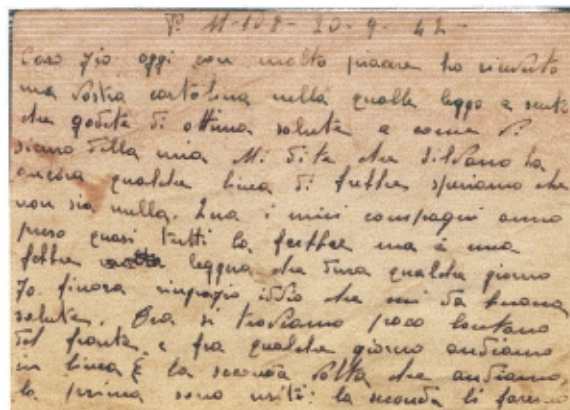 P. M 108 - 20-9-42-
Caro Zio oggi con molto piacere ho ricevuto
una vostra cartolina nella qualle leggo a sento
che godete di ottima salute a come vi
siamo della mia Mi dite che Silvano ha
ancora qualche linea di frebbe speriamo che
non sia nulla. Qua i miei compagni anno
preso quasi tutti la frebbe ma è una
febbre leggera che dura qualche giorno
Io finora ringrazio iddio che mi da buona
salute. Ora si troviamo poco lontano
dal fronte e fra qualche giorno andiamo
in linea È la seconda volta che andiamo,
la prima sono usiti: la seconda li faremo